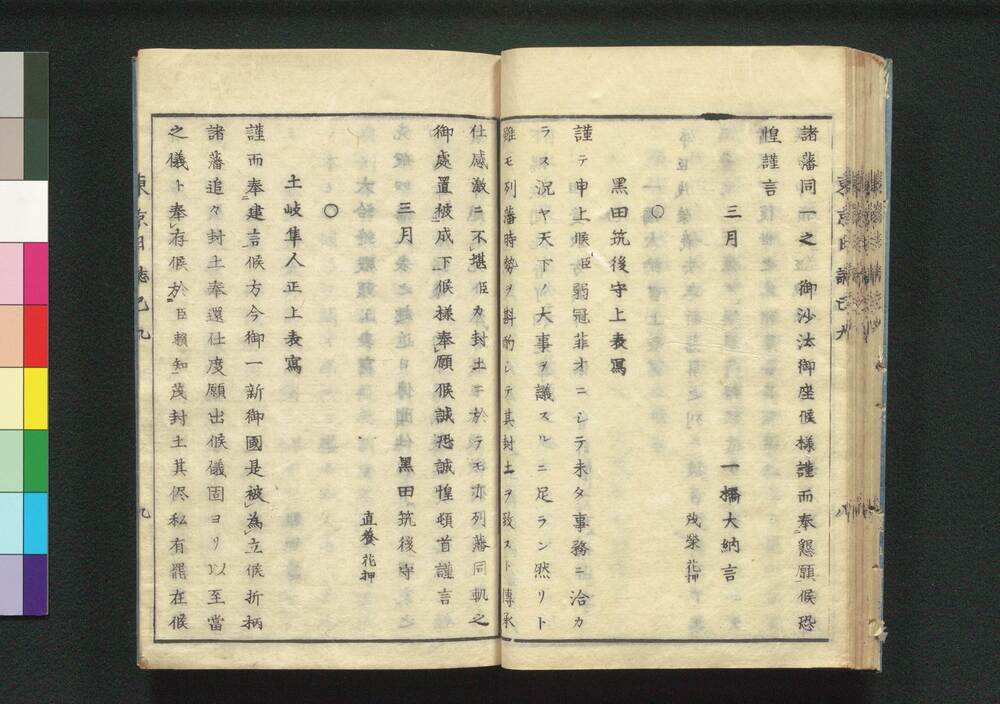 諸藩同一之 御沙汰御座候樣謹而奉懇願候恐
惶謹言
三月
一橋大納言
茂榮花押
○
黑田筑後守上表寫
謹テ申上候臣弱冠菲才ニシテ未タ事務ニ洽カ
ラス況ヤ天下ノ大事ヲ議スルニ足ラン然リト
雖モ列藩時勢ヲ斟酌シテ其封土ヲ致スト傳承
仕感激ニ不堪臣カ封土ニ於テモ亦列藩同軌之
御處置被成下候樣奉願候誠恐誠惶頓首謹言
三月
黑田筑後守
直養花押
○
土岐隼人正上表寫
謹而奉建言候方今御一新御國是被為立候折柄
諸藩追々封土奉還仕度願出候儀固ヨリ以至當
之儀ト奉存候於臣賴知茂封土其侭私有罷在候
東京日誌己九
八
東京日誌己九
九